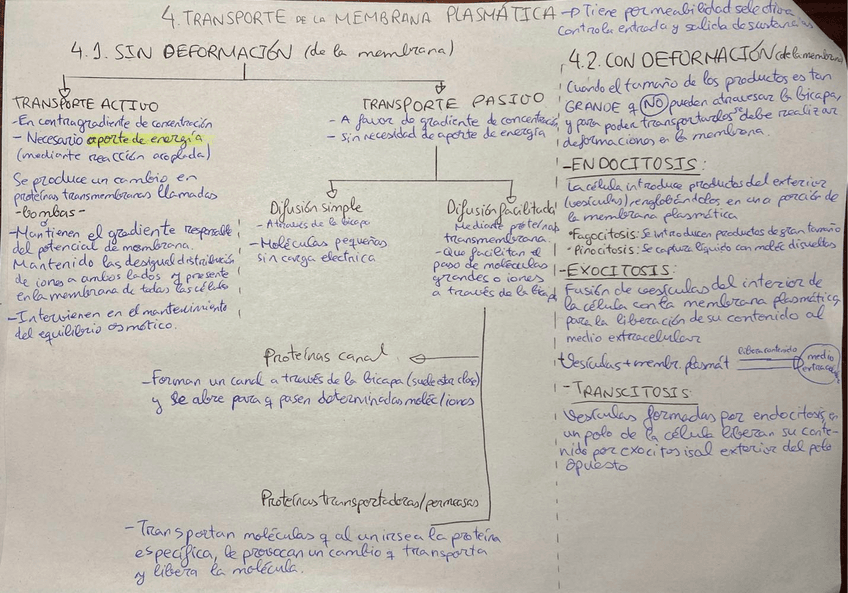 4. TRANSPORTE DE LA MEMBRANA PLASMÁTICA → Tiene permeabilidad selectiva
controla entrada y salida de sustancias
4.1. SIN DEFORMACIÓN (de la membrana)
TRANSPORTE ACTIVO
- En contragradiente de concentración
- Necesario aporte de energía
(mediante reacción acoplada)
Se produce un cambio en
proteínas transmembranas llamadas
- bombas -
- Mantienen el gradiente responsable
del potencial de membrana.
Mantenido las desigual distribución
de iones a ambos lados y presente
en la membrana de todas las células
- Intervienen en el mantenimiento
del equilibrio osmótico.
TRANSPORTE PASIVO
- A favor de gradiente de concentración
- Sin necesidad de aporte de energía
Difusión simple
- A través de la bicapa
- Moléculas pequeñas
sin carga electrica
Difusión facilitada
Mediante proteínas
transmembrana.
- Que facilitan el
paso de moléculas
grandes o iones
a través de la bicapa
Proteínas canal
- Forman un canal a través de la bicapa (suele estar close)
y se abre para q pasen determinadas moléc/iones
Proteínas transportadoras/permeasas
- Transportan moléculas q al unirse a la proteína
específica, le provocan un cambio q transporta
y libera la molécula.
4.2. CON DEFORMACIÓN (de la membrana)
Cuando el tamaño de los productos es tan
GRANDE q NO pueden atravesar la bicapa,
y para poder transportarlos se debe realizar
deformaciones en la membrana.
- ENDOCITOSIS:
La célula introduce productos del exterior
(vesículas) renglobándolos en una porción de
la membrana plasmática
*Fagocitosis: Se introducen productos de gran tamaño
*Pinocitosis: Se captura líquido con moléc disueltas
- EXOCITOSIS:
Fusión de vesículas del interior de
la célula con la membrana plasmática,
para la liberación de su contenido al
medio extracelular
Vesículas + membr. plasmát libera contenido medio
extracel
- TRANSCITOSIS:
Vesículas formadas por endocitosis en
un polo de la célula liberan su conte-
nido por exocitosis al exterior del polo
opuesto